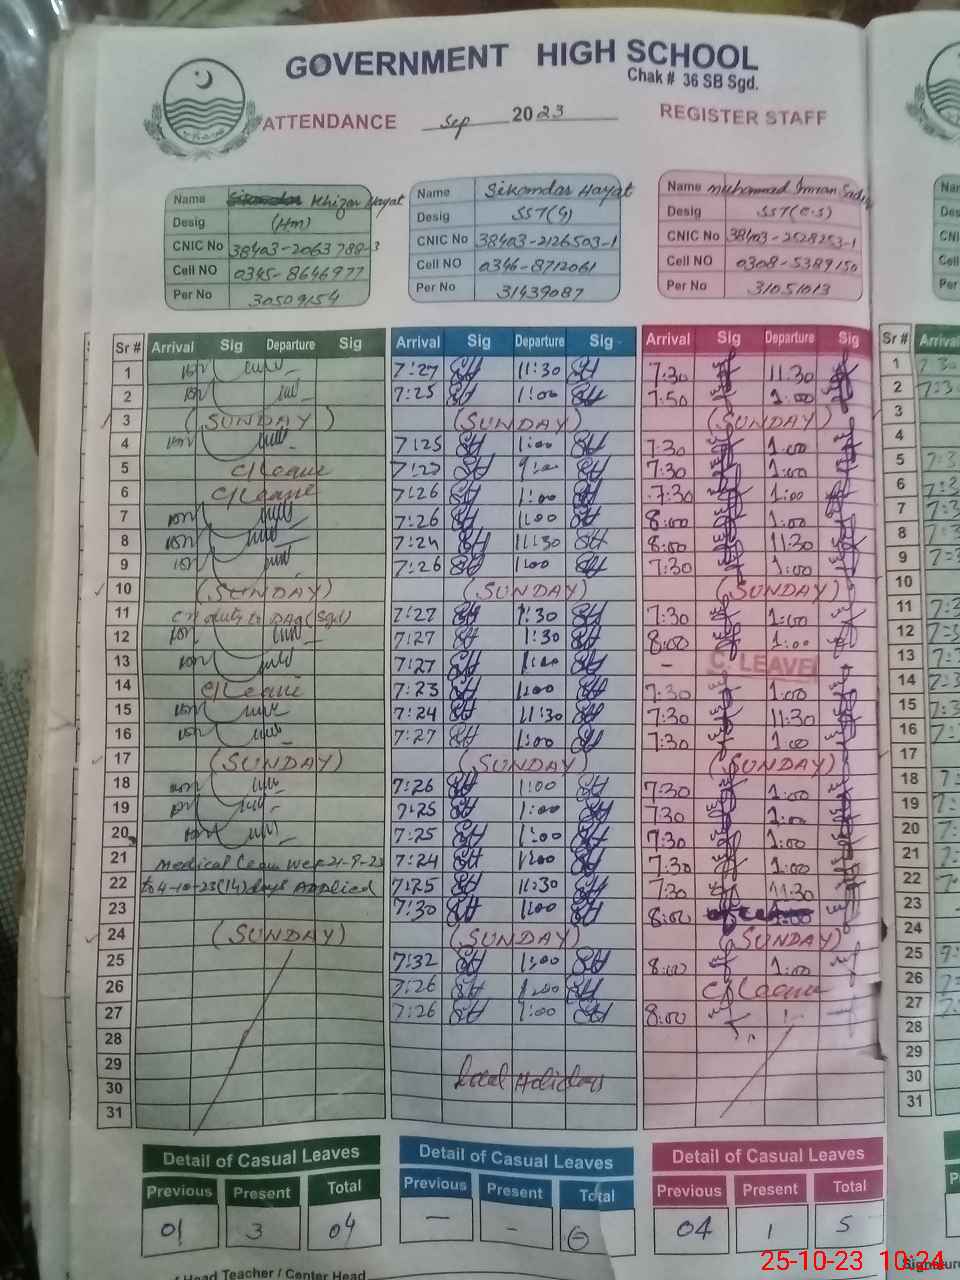 GOVERNMENT HIGH SCHOOL
Chak # 36 SB Sgd.
ATTENDANCE Sep 2023 REGISTER STAFF
Name Khizar Hayat
Desig (Hm)
CNIC No 38403-2063788-3
Cell NO 0345-8646977
Per No 30509154
Name Sikandar Hayat
Desig SST(G)
CNIC No 38403-2126503-1
Cell NO 0346-8712061
Per No 31439087
Name muhammad Imran
Desig SST(C.S)
CNIC No 38403-2528253-1
Cell NO 0308-5389150
Per No 31051013
Sr # Arrival Sig Departure Sig Arrival Sig Departure Sig Arrival Sig Departure Sig Sr # Arrival
1 7:27 11:30 7:30 11:30 1
2 7:25 1:00 7:50 1:00 2
3 (SUNDAY) (SUNDAY) (SUNDAY) 3
4 7:25 1:00 7:30 1:00 4
5 C/Leave 7:27 7:30 1:00 5
6 C/Leave 7:26 1:00 7:30 1:00 6
7 7:26 1:00 8:00 1:00 7
8 7:24 11:30 8:00 11:30 8
9 7:26 1:00 7:30 1:00 9
10 (SUNDAY) (SUNDAY) (SUNDAY) 10
11 on duty to (Sgd) 7:27 1:30 7:30 1:00 11
12 7:27 1:30 8:00 1:00 12
13 7:27 1:00 - C. LEAVE 13
14 C/Leave 7:23 1:00 7:30 1:00 14
15 7:24 11:30 7:30 11:30 15
16 7:27 1:00 7:30 1:00 16
17 (SUNDAY) (SUNDAY) (SUNDAY) 17
18 7:26 1:00 7:30 1:00 18
19 7:25 1:00 7:30 1:00 19
20 7:25 1:00 7:30 1:00 20
21 Medical Leave Wef 21-9-23 7:24 1:00 7:30 1:00 21
22 to 4-10-23 (14) days Applied 7:25 11:30 7:30 11:30 22
23 7:30 1:00 8:00 23
24 (SUNDAY) (SUNDAY) (SUNDAY) 24
25 7:32 1:00 8:00 1:00 25
26 7:26 1:00 C/Leave 26
27 7:26 1:00 8:00 27
28 28
29 29
30 Local Holidays 30
31 31
Detail of Casual Leaves Detail of Casual Leaves Detail of Casual Leaves
Previous Present Total Previous Present Total Previous Present Total
01 3 04 - - 0 04 1 5
Head Teacher / Center Head
25-10-23 10:24